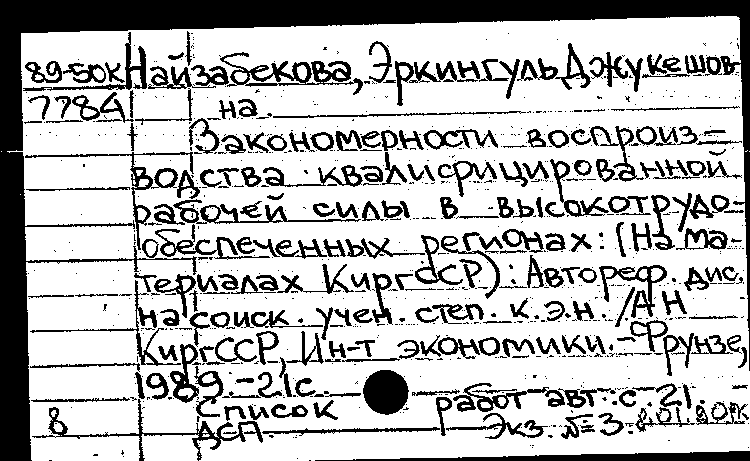 89-50К Найзабекова, Эркингуль Джукешов-
7784 на.
Закономерности воспроиз=
водства квалифицированной
рабочей силы в высокотрудо-
обеспеченных регионах: (На ма-
териалах КиргССР): Автореф. дис.
на соиск. учен. степ. к.э.н. /АН
КиргССР, Ин-т экономики.-Фрунзе,
1989.-21с.
Список работ авт.: с.21. -
8 ДСП. Экз. №3.